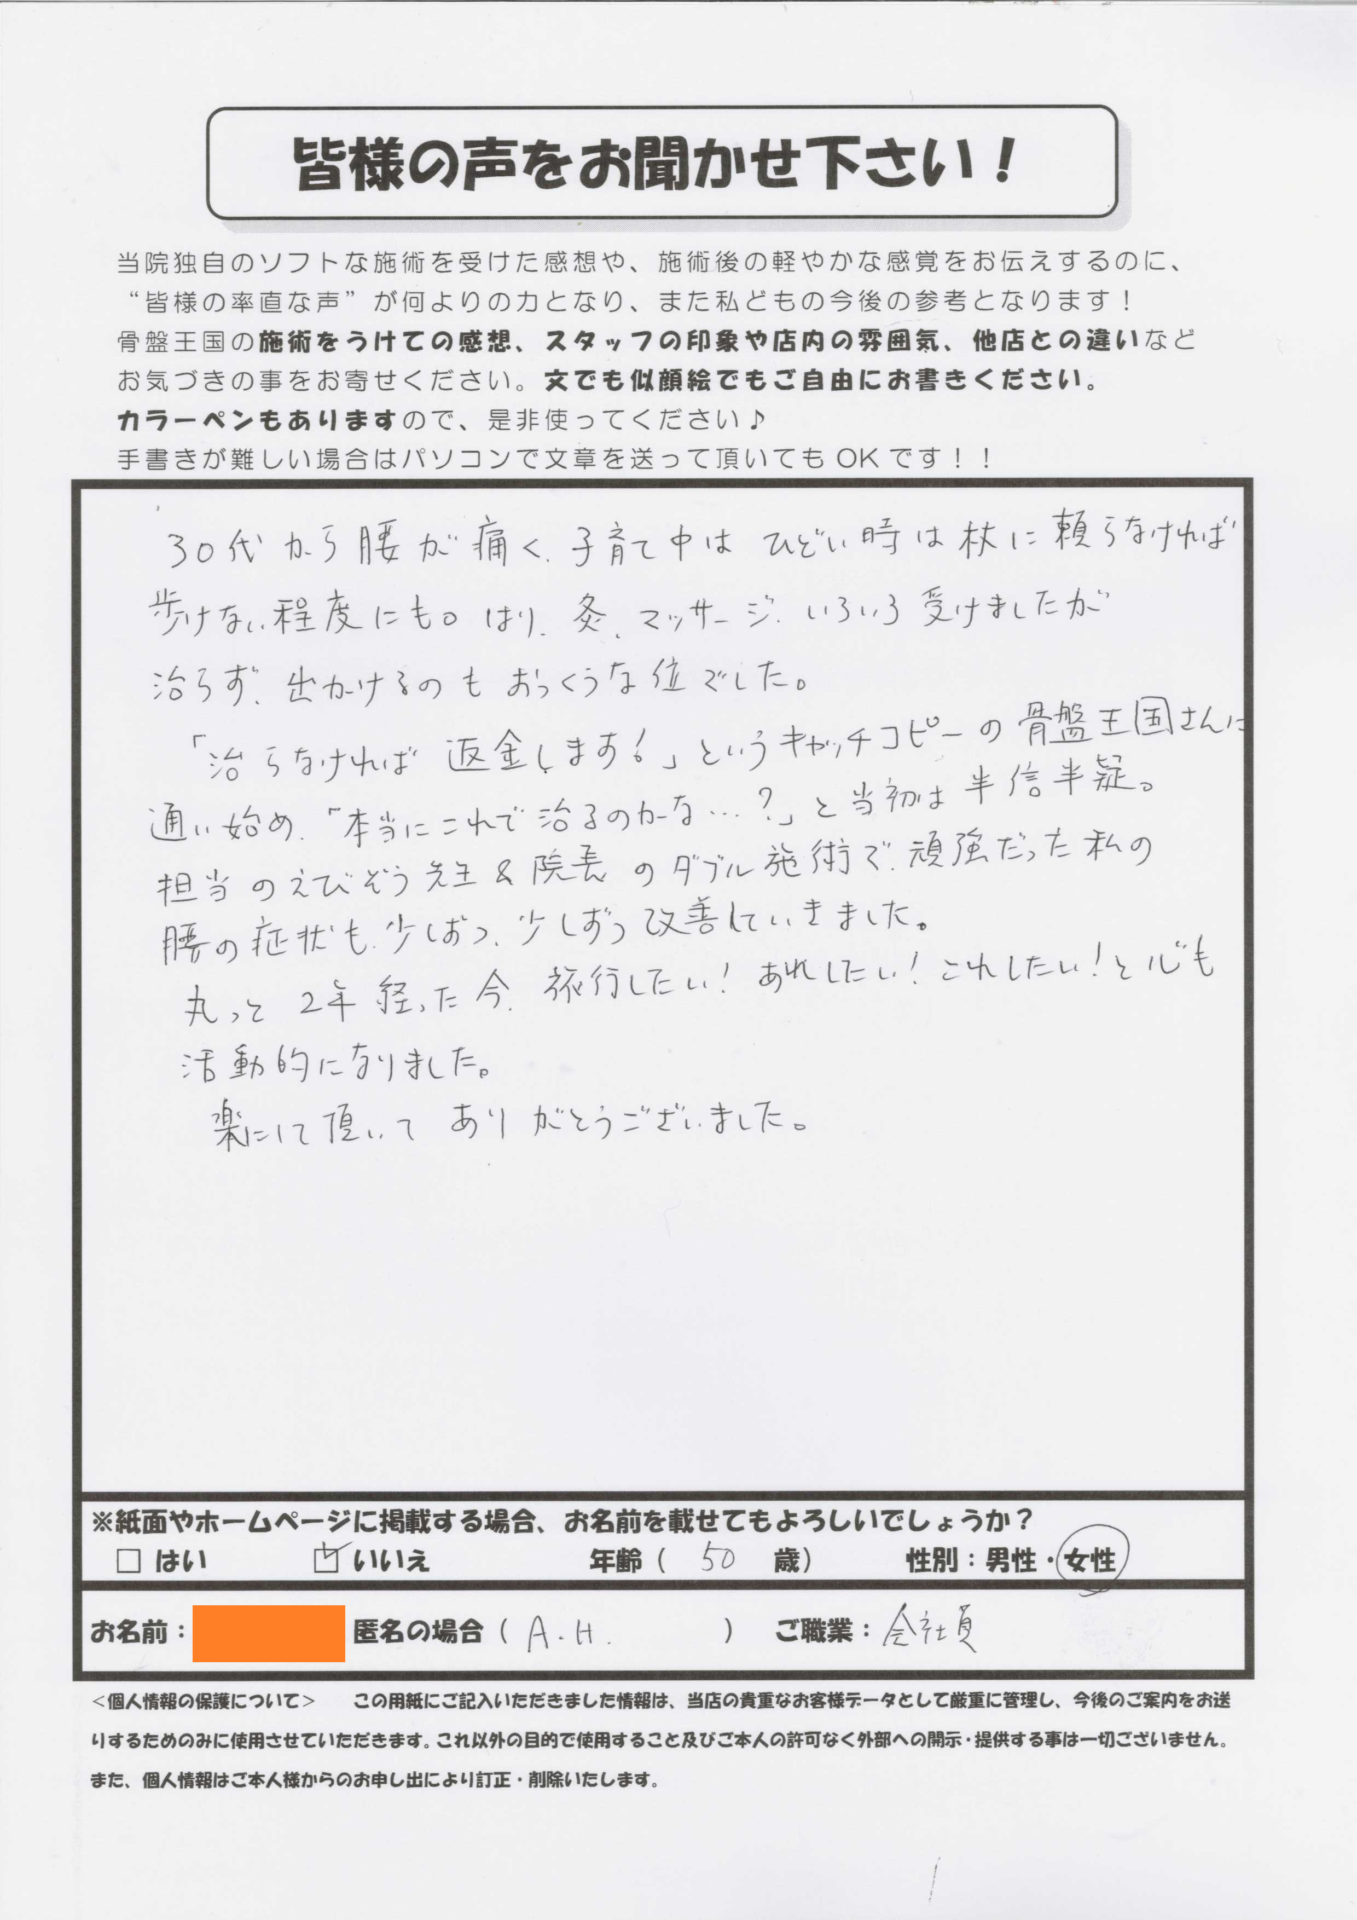 皆様の声をお聞かせ下さい！
当院独自のソフトな施術を受けた感想や、施術後の軽やかな感覚をお伝えするのに、
“皆様の率直な声”が何よりの力となり、また私どもの今後の参考となります！
骨盤王国の施術をうけての感想、スタッフの印象や店内の雰囲気、他店との違いなど
お気づきの事をお寄せください。文でも似顔絵でもご自由にお書きください。
カラーペンもありますので、是非使ってください♪
手書きが難しい場合はパソコンで文章を送って頂いてもOKです！！
30代から腰が痛く、子育て中は ひどい時は杖に頼らなければ
歩けない程度にも。はり、灸、マッサージ、いろいろ受けましたが
治らず、出かけるのもおっくうな位でした。
「治らなければ返金します！」というキャッチコピーの骨盤王国さんに
通い始め、「本当にこれで治るのかな…？」と当初は半信半疑。
担当のえびぞう先生＆院長のダブル施術で、頑強だった私の
腰の症状も、少しずつ、少しずつ改善していきました。
丸っと2年経った今、旅行したい！あれしたい！これしたい！と心も
活動的になりました。
楽にして頂いて ありがとうございました。
※紙面やホームページに掲載する場合、お名前を載せてもよろしいでしょうか？
□ はい ☑ いいえ 年齢（ 50 歳） 性別：男性・女性
お名前： 匿名の場合（ A.H. ） ご職業：会社員
＜個人情報の保護について＞ この用紙にご記入いただきました情報は、当店の貴重なお客様データとして厳重に管理し、今後のご案内をお送
りするためのみに使用させていただきます。これ以外の目的で使用すること及びご本人の許可なく外部への開示・提供する事は一切ございません。
また、個人情報はご本人様からのお申し出により訂正・削除いたします。